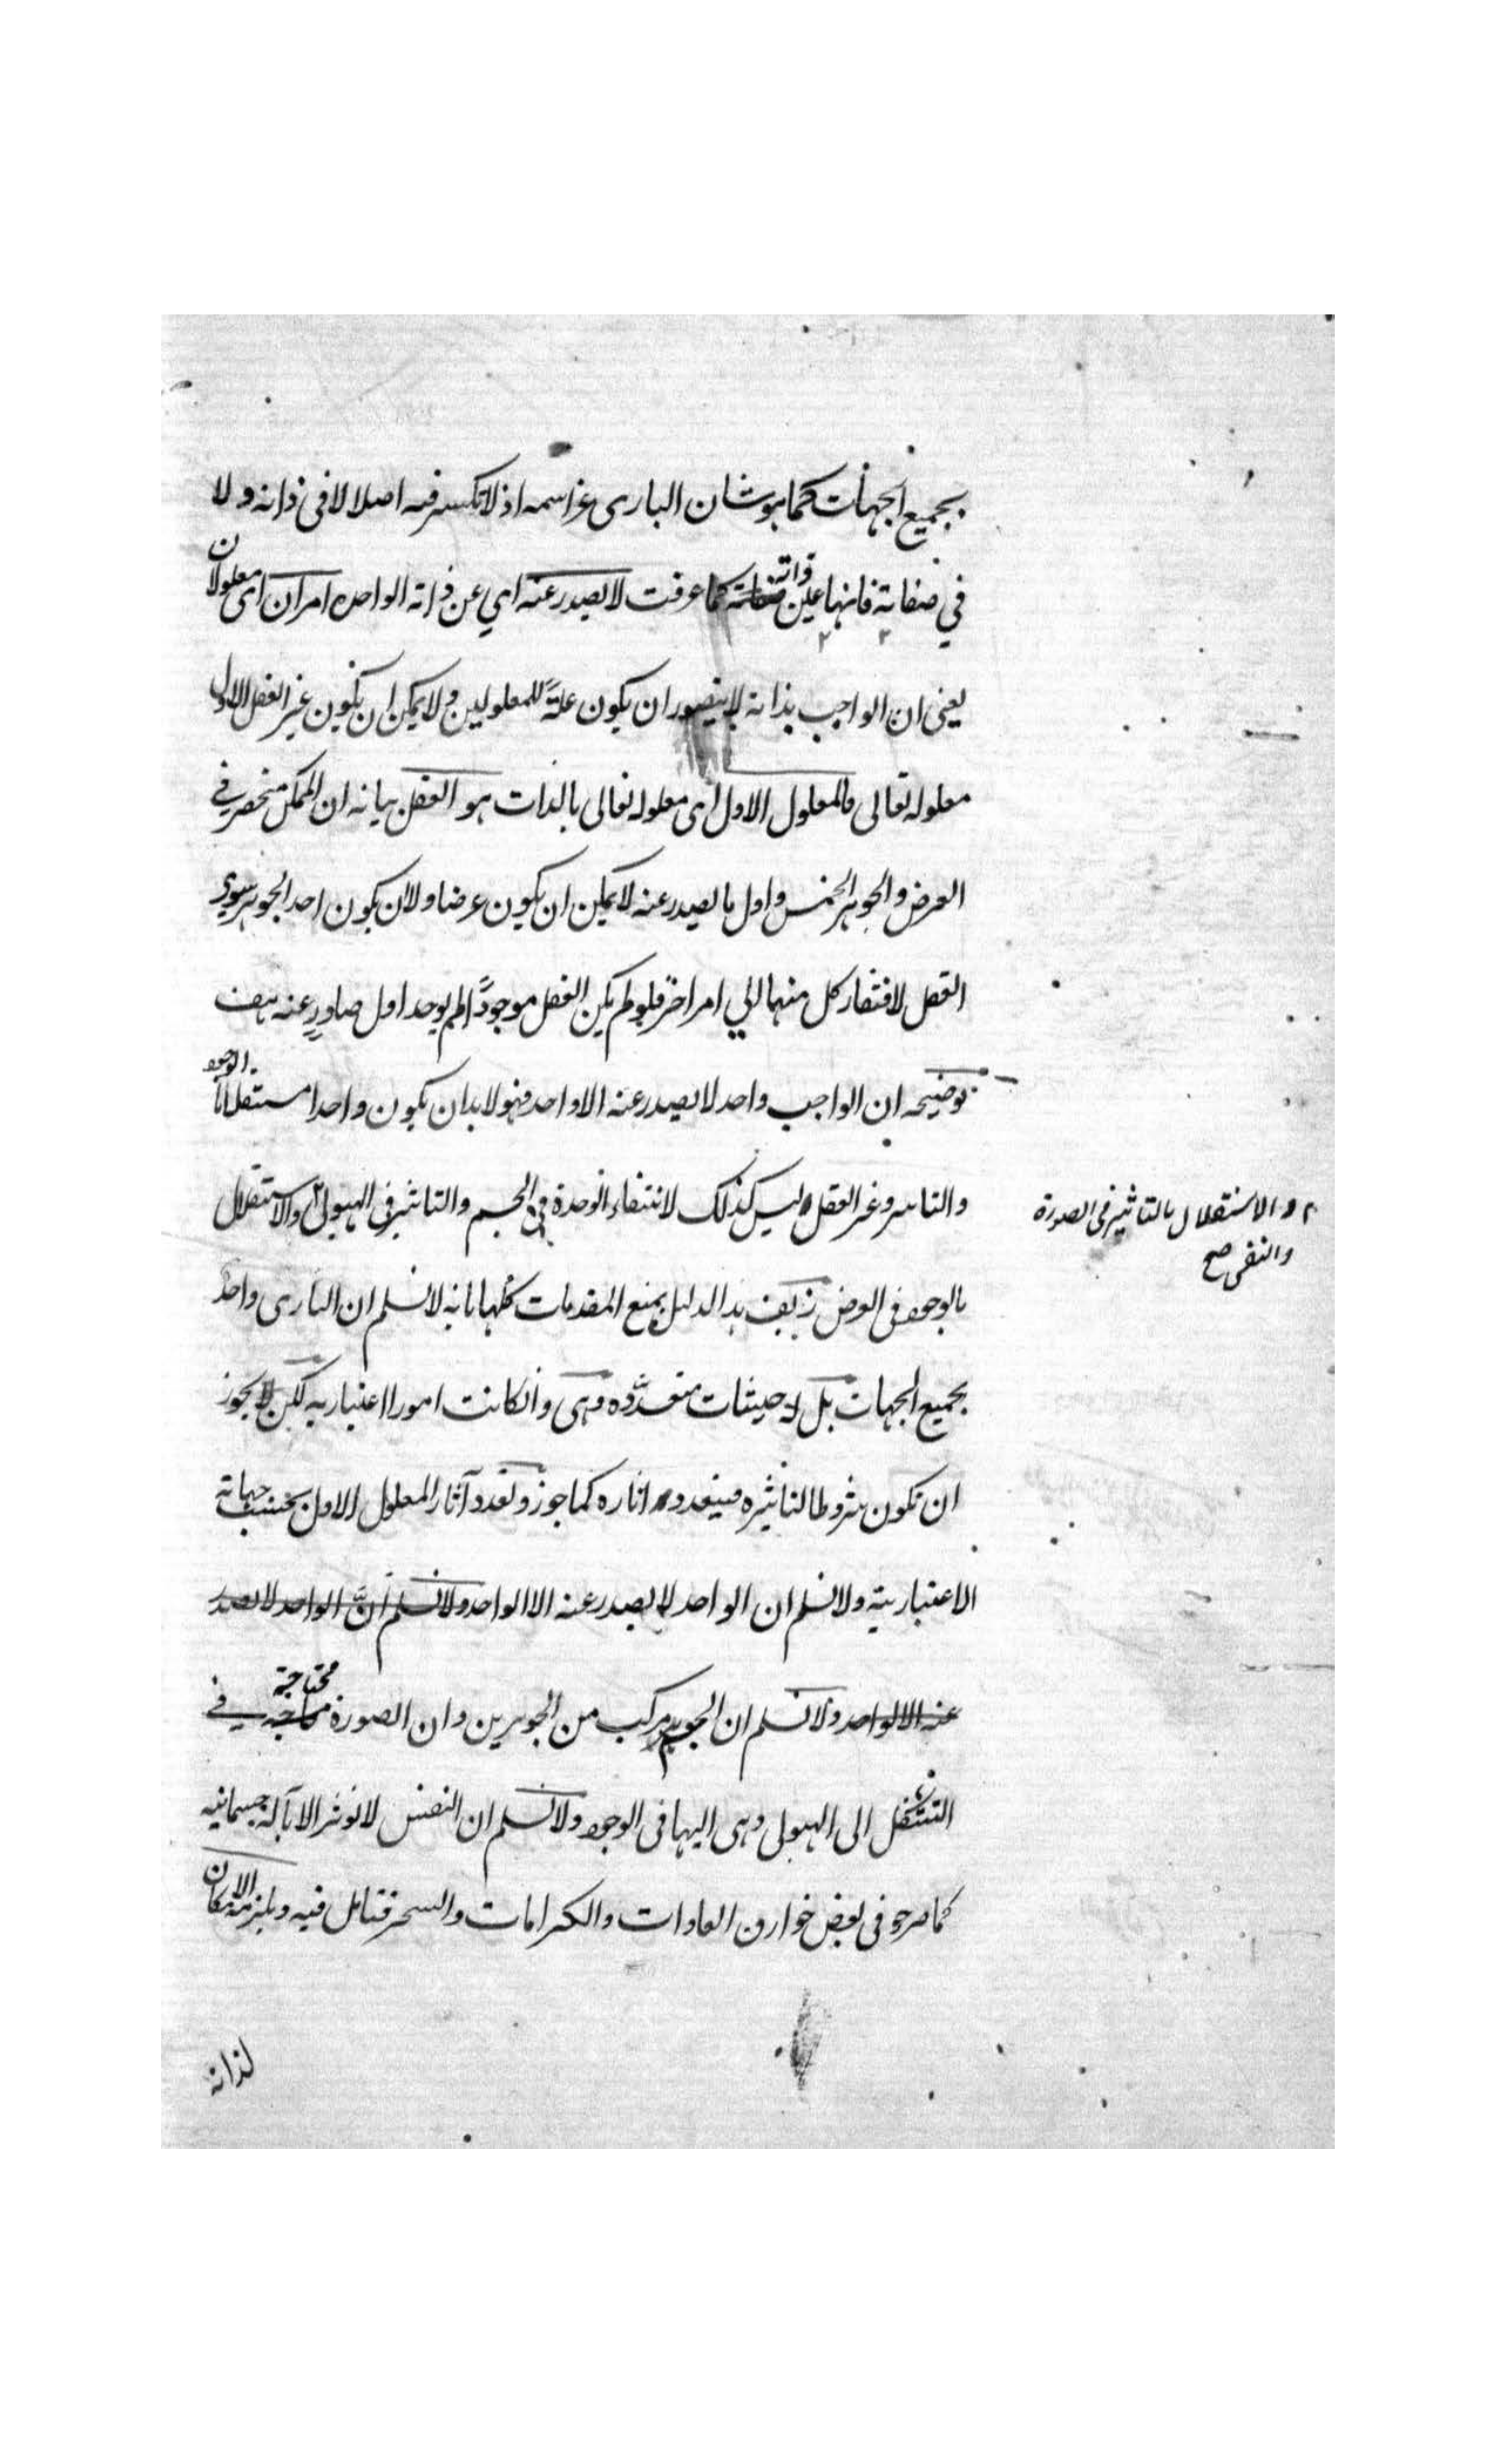 بجميع الجهات كما هو شان البارى عز اسمه اذ لا تكثر فيه اصلا لا فى ذاته ولا
في صفاته فانها عين ذاته كما عرفت لا يصدر عنه اي عن ذاته الواحد امران اى معلولان
يعنى ان الواجب بذاته لا يتصور ان يكون علةً للمعلولين ولا يمكن ان يكون غير العقل الاول
معلوله تعالى فالمعلول الاول اى معلوله تعالى بالذات هو العقل بيانه ان الممكن منحصر في
العرض والجوهر الخمس واول ما يصدر عنه لا يمكن ان يكون عرضا ولا ان يكون احد الجوهر سوى
العقل لافتقار كل منهما الي امر اخر فلو لم يكن العقل موجوداً لم يوجد اول صادرٍ عنه هف
توضيحه ان الواجب واحد لا يصدر عنه الا واحد فهو لا بد ان يكون واحدا مستقلا بالوجود
والتاثير وغير العقل ليس كذلك لانتفاء الوحدة في الجسم والتاثير فى الهيولى والاستقلال
٢ والاستقلال بالتاثير فى الصورة
والنفس صح
بالوجود فى العرض زيف هذا الدليل بمنع المقدمات كلها بانه لا نسلم ان البارى واحد
بجميع الجهات بل له حيثيات متعددة وهى وان كانت امورا اعتباريه لكن لا يجوز
ان تكون شروطا لتاثيره فيتعدد اثاره كما جوز وتعدد آثار المعلول الاول بحسب جهاته
الاعتبارية ولا نسلم ان الواحد لا يصدر عنه الا الواحد ولا نسلم انَّ الواحد لا يصدر
عنه الا الواحد ولا نسلم ان الجسم مركب من الجوهرين وان الصورة محتاجة في
التشكل الى الهيولى وهى اليها فى الوجود ولا نسلم ان النفس لا تؤثر الا بآلة جسمانيه
كما صرح فى بعض خوارق العادات والكرامات والسحر فتامل فيه ويلزمه الامكان
لذاته